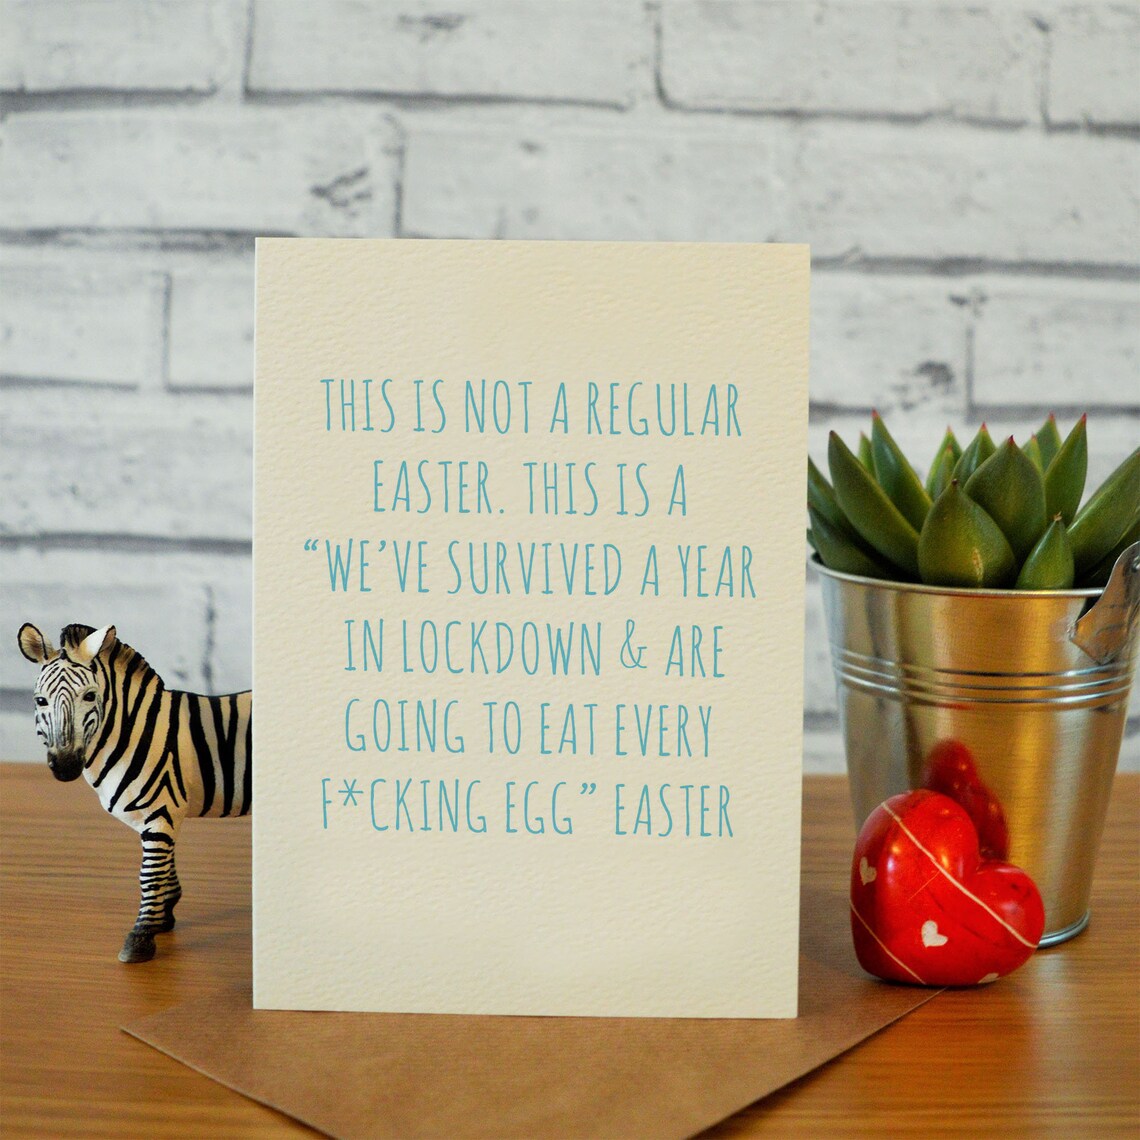 THIS IS NOT A REGULAR
EASTER. THIS IS A
“WE’VE SURVIVED A YEAR
IN LOCKDOWN & ARE
GOING TO EAT EVERY
F*CKING EGG” EASTER